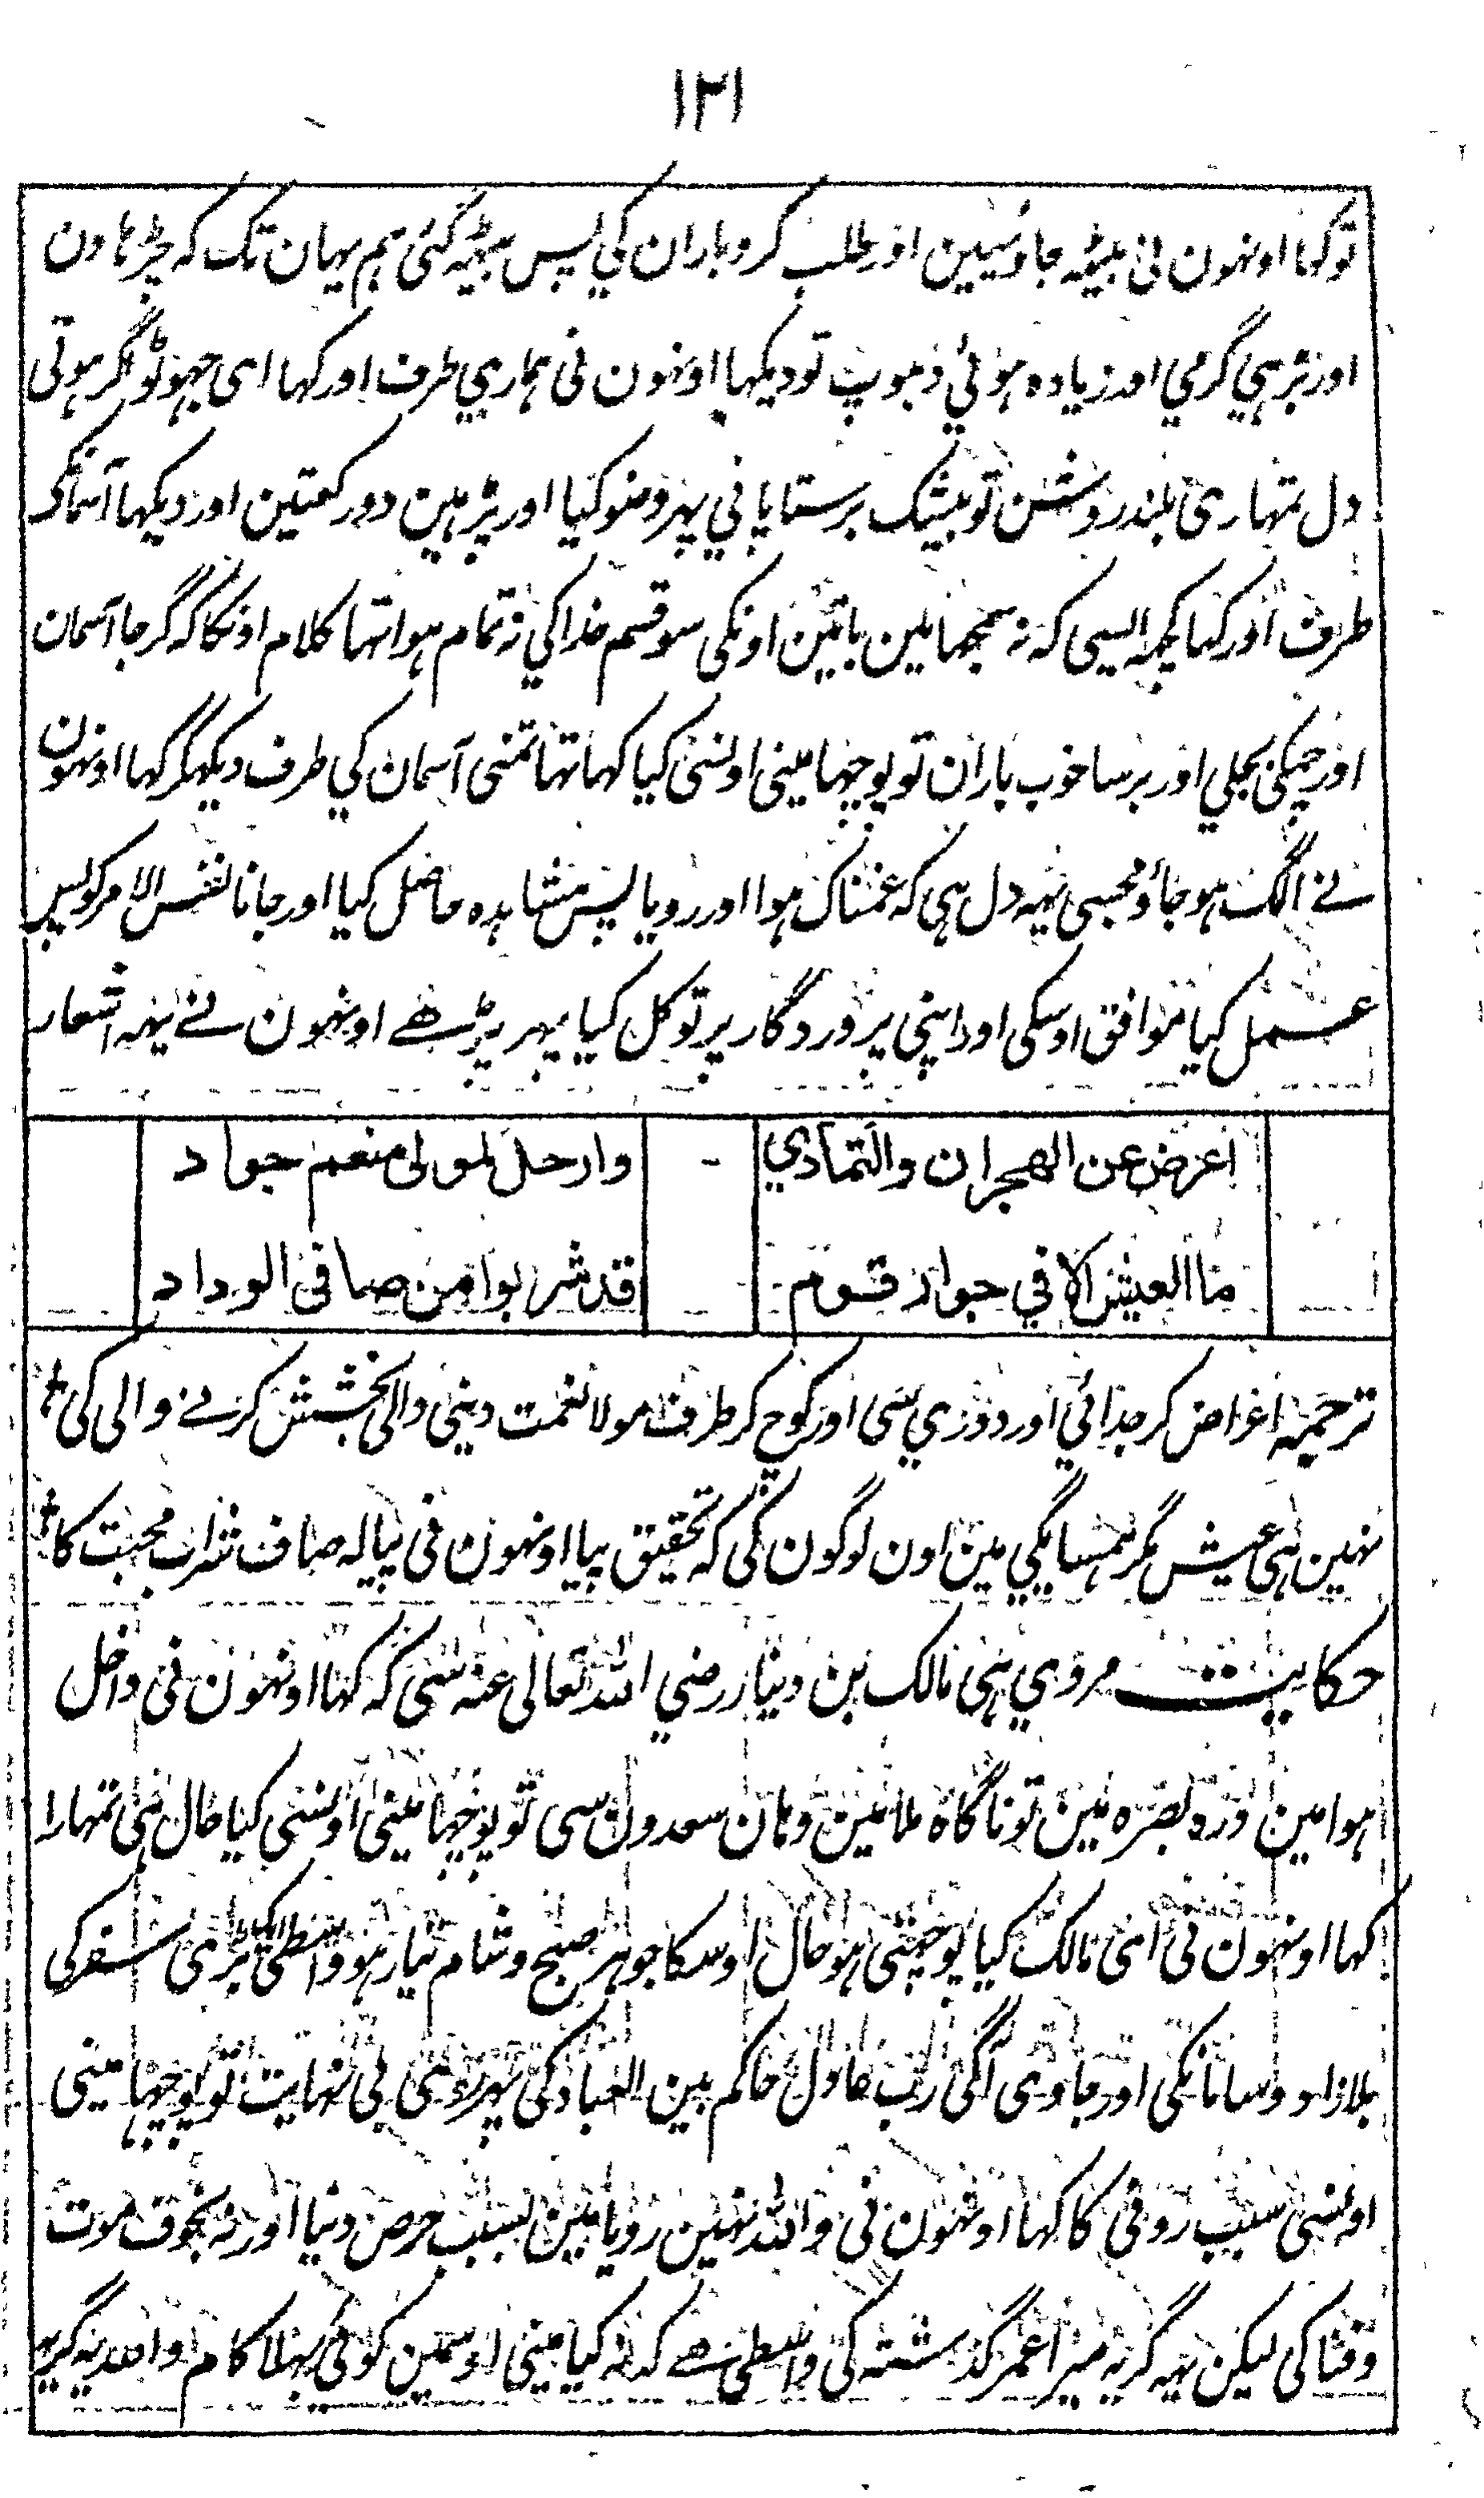 ۱۲۱
تو کہا اونہون نی بیٹہہ جاؤ یہین اور طلب کرو باران کي پس بیٹہہ گئی ہم یہان تک کہ چڑہا دن
اور بڑہي گرمي اور زیادہ ہوئي دہوپ تو دیکہا اونہون نی ہماري طرف اور کہا ای جہوٹو اگر ہوتی
دل تمہاری بلند روشن تو بیشک برستا پاني پہر وضو کیا اور پڑہین دو رکعتین اور دیکہا آسمانکی
طرف اور کہا کچہہ ایسی کہ نہ سمجہا مین باتین اونکی سو قسم خدا کي نہ تمام ہوا تہا کلام اونکا کہ گرجا آسمان
اور چمکی بجلي اور برسا خوب باران تو پوچہا مینی اونسی کیا کہا تہا تمنی آسمان کي طرف دیکہکر کہا اونہون
نے الگ ہو جاؤ مجہسی یہہ دل ہی کہ غمناک ہوا اور رویا پس مشاہدہ حاصل کیا اور جانا نفس الامر کو پس
عمل کیا موافق اوسکی اور اپنی پروردگار پر توکل کیا پہر پڑھے اونہون نے یہہ اشعار
اعرض عن الهجران والتمادي - وارحل لمولى منعم جواد
ما العيش الا في جوار قوم قد شربوا من صافى الوداد
ترجمہ اعراض کر جدائي اور دوري سی اور کوچ کر طرف مولا نعمت دینی والی بخشش کرنے والی کی
نہین ہی عیش مگر ہمسایگي مین اون لوگون کی کہ تحقیق پیا اونہون نی پیالہ صاف شراب محبت کا
حکایت مروي ہی مالک بن دینار رضي اللہ تعالی عنہ سی کہ کہا اونہون نی داخل
ہوا مین بصرہ مین تو ناگاہ ملا مین وہان سعدون سی تو پوچہا مینی اونسی کیا حال ہی تمہارا
کہا اونہون نی ای مالک کیا پوچہتی ہو حال اوسکا جو ہر صبح و شام تیار ہو واسطی بڑی سفر کی
بلا زاد و سامانکی اور جاوی اگی رب عادل حاکم بین العباد کی پہر روئی بی نہایت تو پوچہا مینی
اونسی سبب رونی کا کہا اونہون نی واللہ نہین رویا مین بسبب حرص دنیا اور نہ بخوف موت
وفنا کی لیکن یہہ گریہ میرا عمر گذشتہ کی واسطی ہے کہ نہ کیا مینی اوسمین کوئی بہلا کام واللہ یہ گریہ